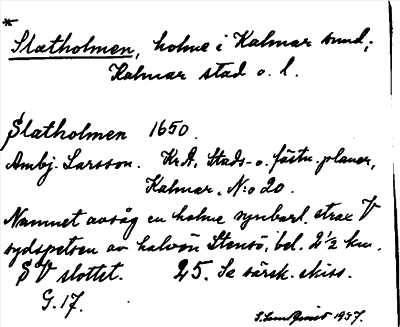 *
Slatholmen, holme i Kalmar sund,
Kalmar stad o. l.
Slatholmen 1650.
Ambj. Larsson. Kr.A. Stads- o. fästn. planer,
Kalmar. N:o 20.
Namnet avsåg en holme synbarl. strax V
sydspetsen av halvön Stensö, bel. 2 1/2 km.
SV slottet. 25. Se särsk. skiss.
G. 17.
1937.